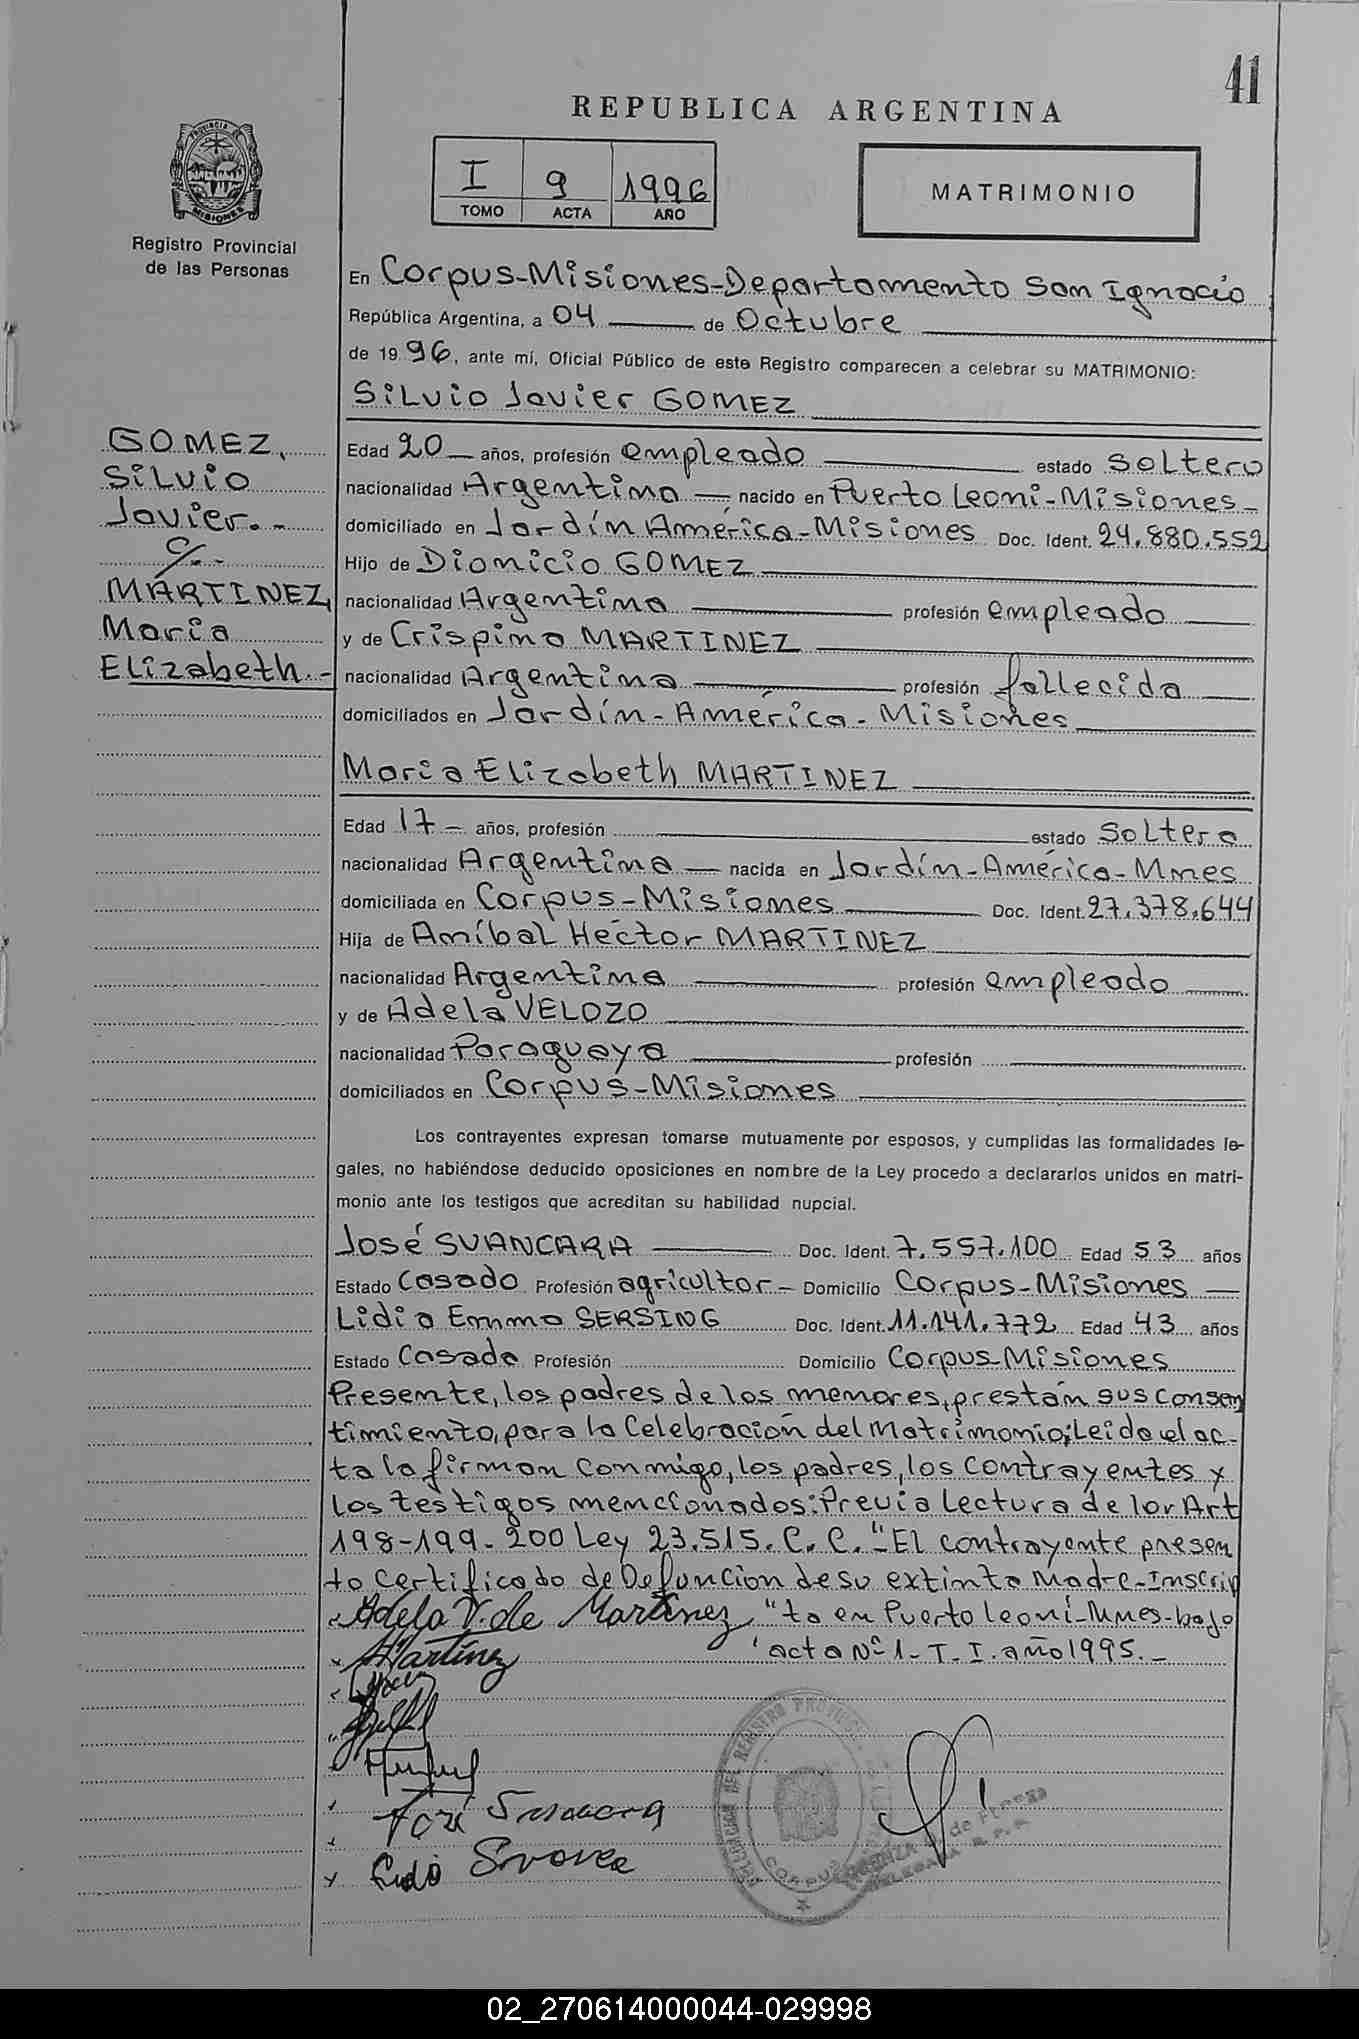 41
REPUBLICA ARGENTINA
I 9 1996
TOMO ACTA AÑO
MATRIMONIO
PROVINCIA DE MISIONES
Registro Provincial
de las Personas
En Corpus-Misiones-Departamento San Ignacio
República Argentina, a 04 de Octubre
de 1996, ante mí, Oficial Público de este Registro comparecen a celebrar su MATRIMONIO:
Silvio Javier GOMEZ
GOMEZ,
Silvio
Javier.-
c/.-
MARTINEZ,
Maria
Elizabeth.-
Edad 20 años, profesión empleado estado soltero
nacionalidad Argentina nacido en Puerto Leoni-Misiones-
domiciliado en Jardín América-Misiones Doc. Ident. 24.880.552
Hijo de Dionicio GOMEZ
nacionalidad Argentina profesión empleado
y de Crispina MARTINEZ
nacionalidad Argentina profesión fallecida
domiciliados en Jardín-América-Misiones
Maria Elizabeth MARTINEZ
Edad 17 años, profesión estado soltera
nacionalidad Argentina nacida en Jardín-América-Mnes
domiciliada en Corpus-Misiones Doc. Ident. 27.378.644
Hija de Aníbal Héctor MARTINEZ
nacionalidad Argentina profesión empleado
y de Adela VELOZO
nacionalidad Paraguaya profesión
domiciliados en Corpus-Misiones
Los contrayentes expresan tomarse mutuamente por esposos, y cumplidas las formalidades le-
gales, no habiéndose deducido oposiciones en nombre de la Ley procedo a declararlos unidos en matri-
monio ante los testigos que acreditan su habilidad nupcial.
José SVANCARA Doc. Ident. 7.557.100 Edad 53 años
Estado Casado Profesión agricultor- Domicilio Corpus-Misiones
Lidia Emma SERSING Doc. Ident. 11.141.772 Edad 43 años
Estado Casada Profesión Domicilio Corpus-Misiones
Presente, los padres de los menores, prestan sus consen
timiento, para la Celebración del Matrimonio; Leida el ac-
ta la firman conmigo, los padres, los contrayentes y
los testigos mencionados: Previa Lectura de lor Art
198-199-200 Ley 23.515. C. C. "-El contrayente presen
to certificado de Defuncion de su extinta Madre-Inscrip
Adela V. de Martinez "ta en Puerto Leoni-Mnes-bajo
Martínez "acta Nº 1-T-I. año 1995.-
DELEGACION DEL REGISTRO PROVINCIAL
CORPUS
02_270614000044-029998